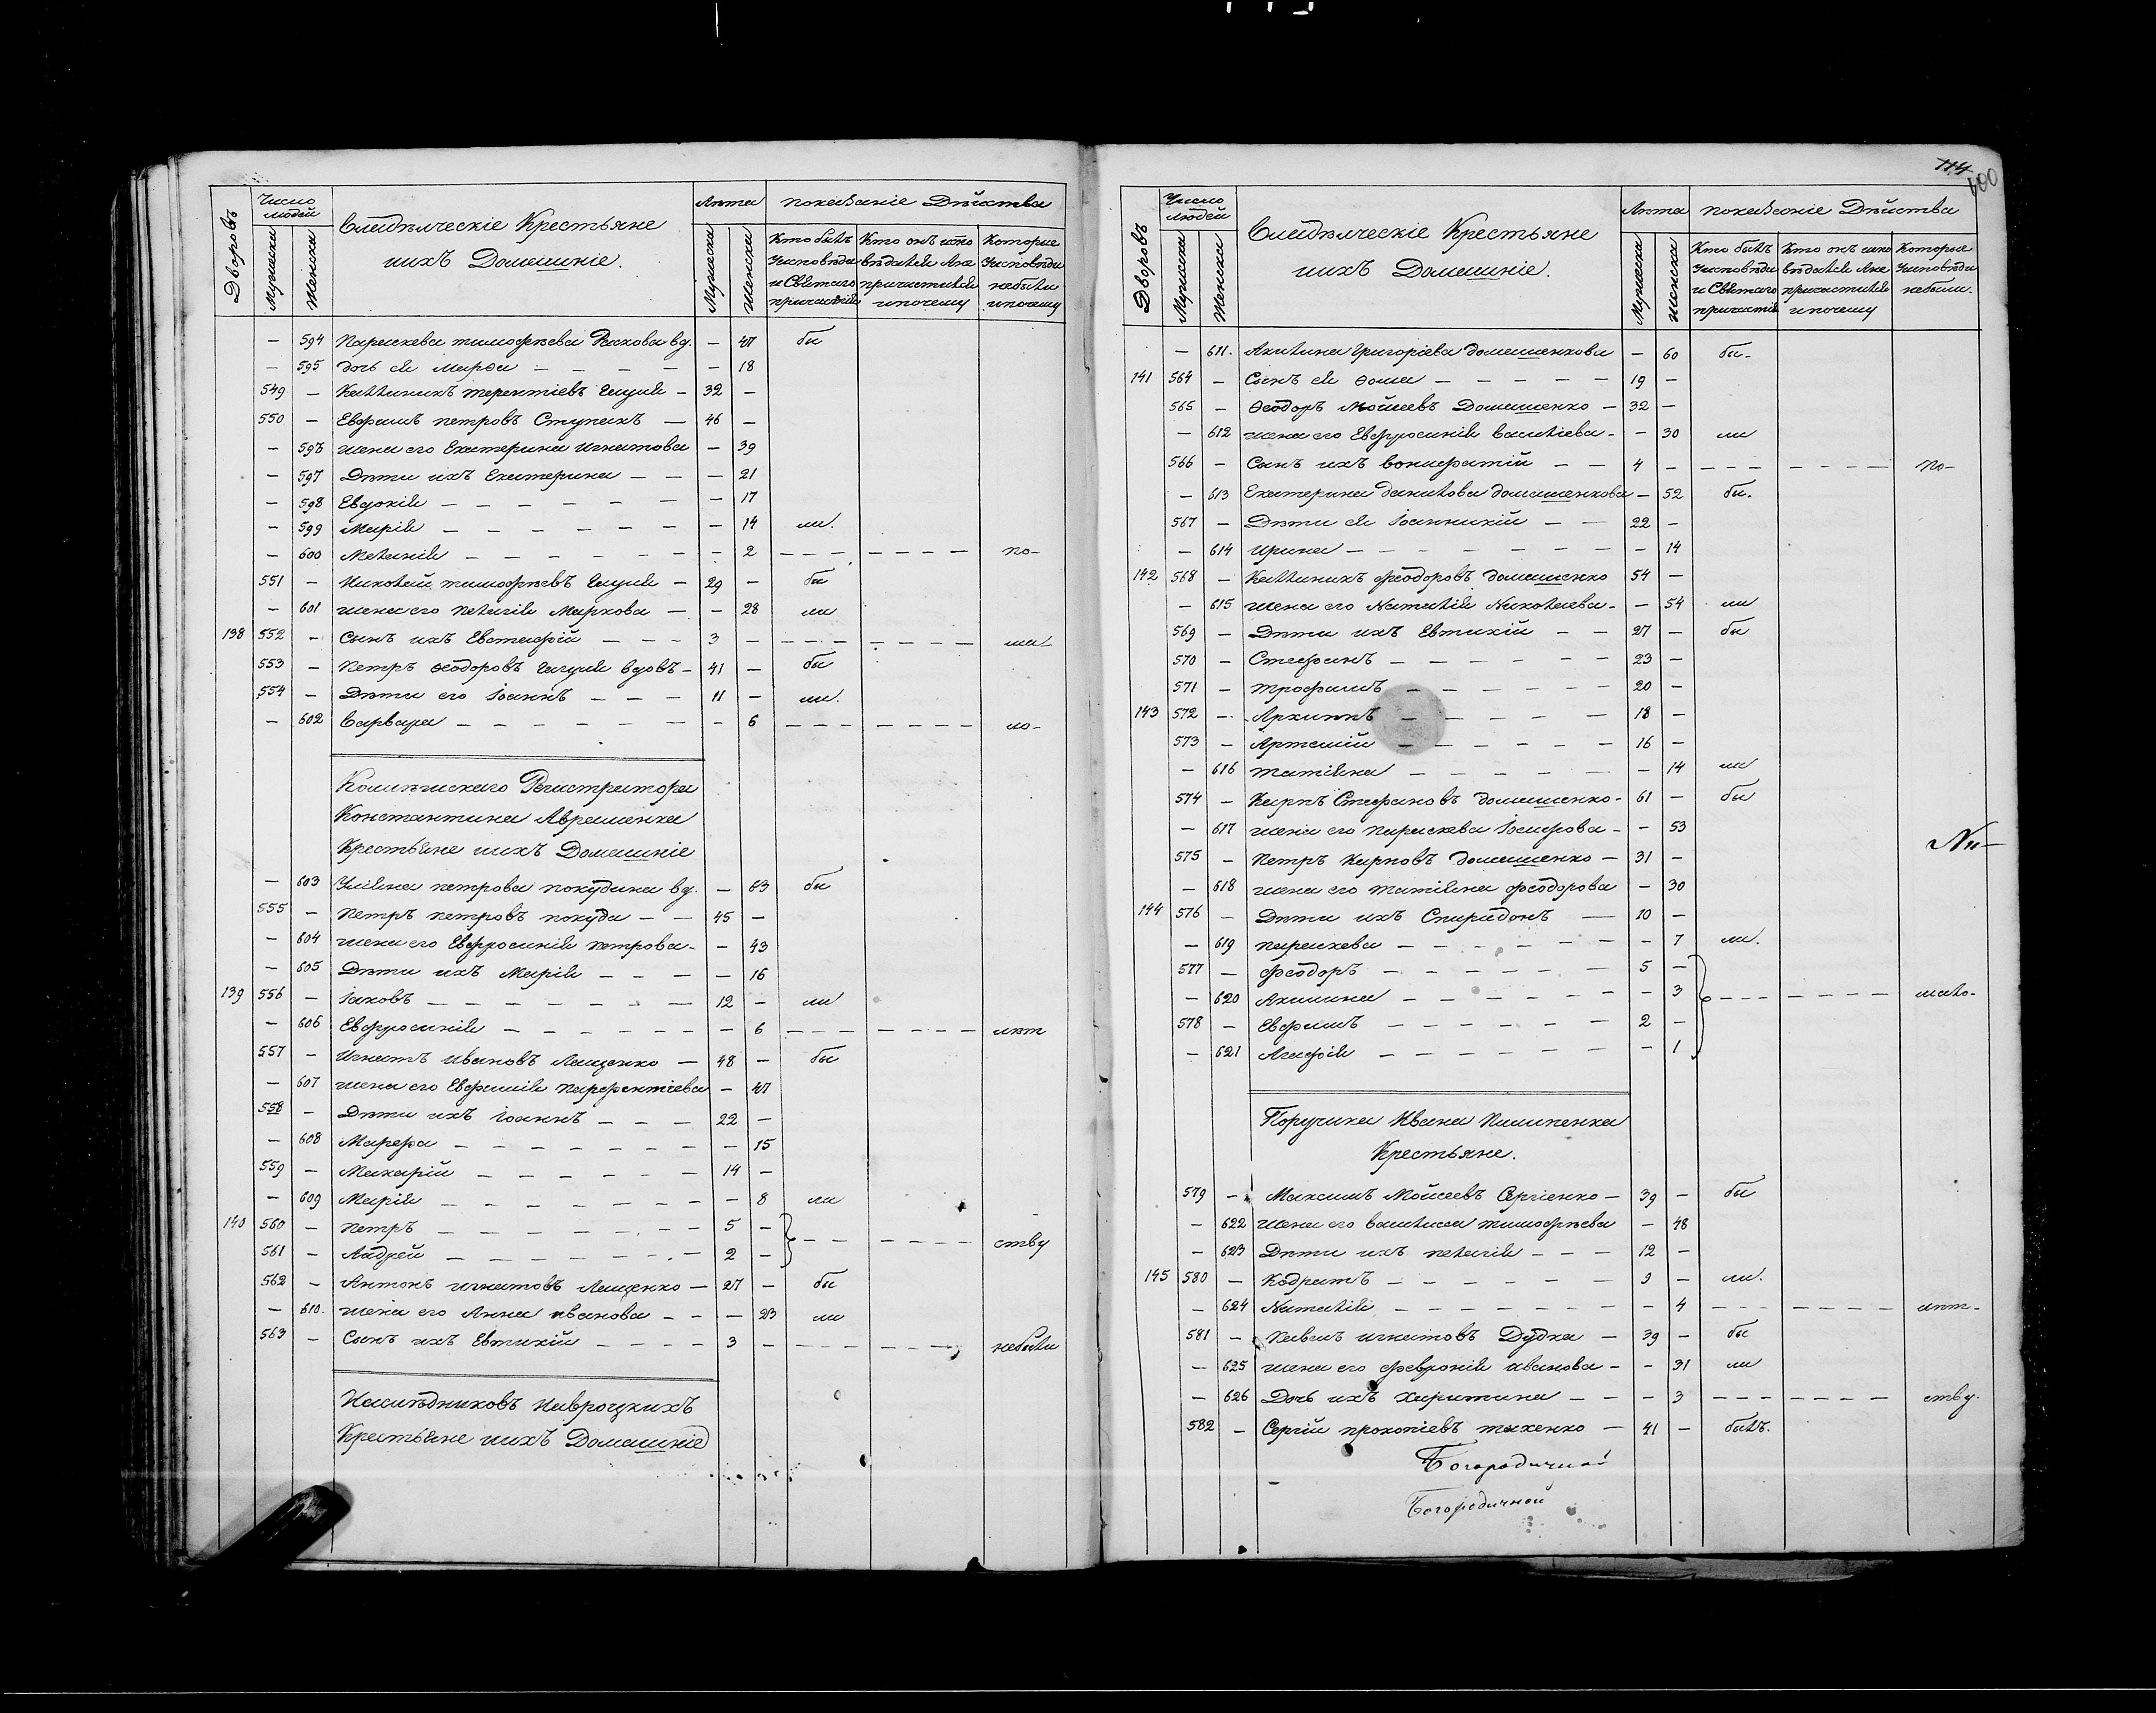 Дворовъ
Число людей
Мужеска
Женска
Владѣлческіе Крестьяне
ихъ Домашніе.
Лѣта
Мужеска
Женска
показаніе Дѣйства
Кто былъ
у исповѣди
и Святаго
причастія
Кто онъ испо
вѣдался А не
причастился
и почему
Которые
у исповѣди
небыли
и почему
— 594 Параскева тимофѣева вд. — 47 бы
— 595 дочь ея Марфа — 18
549 — Каллиникъ терентіевъ — 32 —
550 — Евфимъ петровъ Ступакъ — 46 —
— 596 жена его Екатерина игнатова — 39
— 597 Дѣти ихъ Екатерина — — 21
— 598 Евдокія — — 17
— 599 Марія — — 14 ли.
— 600 Меланія — — 2 — — по-
551 — Николай тимофѣевъ — 29 — бы
— 601 жена его пелагія Маркова — — 28 ли
138 552 — Сынъ ихъ Евстафій — 3 — — —
553 — Петръ Ѳеодоровъ вдовъ — 41 — бы
554 — Дѣти его Іоаннъ — 11 — ли.
— 602 Варвара — — 6 — —
Колежскаго Регистратора
Константина Авраменка
Крестьяне ихъ Домашніе
— 603 Уліяна петрова покудина вд. — 63 бы
555 — Петръ петровъ покуда — 45 —
— 604 жена его Евфросинія петрова — — 43
— 605 Дѣти ихъ Марія — — 16
139 556 — Іаковъ — 12 — ли
— 606 Евфросинія — — 6 — — лѣт
557 — Игнатъ ивановъ Лащенко — 48 — бы
— 607 жена его Евфимія парфентіева — 47
558 — Дѣти ихъ іоаннъ — 22 —
— 608 Марфа — — 15
559 — Макарій — 14 —
— 609 Марія — — 8 ли
140 560 — петръ — 5 —
561 — Андрей — 2 — — — ству
562 — Антонъ игнатовъ Лащенко — 27 — бы
— 610. жена его Анна иванова — — 23 ли
563 — Сынъ ихъ Евтихій — 3 — — — небыли
Наслѣдниковъ Навроцкихъ
Крестьяне ихъ Домашніе
114
600
Дворовъ
Число людей
Мужеска
Женска
Владѣлческіе Крестьяне
ихъ Домашніе.
Лѣта
Мужеска
Женска
показаніе Дѣйства
Кто былъ
у исповѣди
и Святаго
причастія
Кто онъ испо
вѣдался А не
причастился
и почему
Которые
у исповѣди
небыли.
— 611. Акилина Григоріева домашенкова — 60 бы-
141 564 — Сынъ ея Ѳома — 19 —
565 — Ѳеодоръ Мойсеевъ Домашенко — 32 —
— 612 жена его Евфросинія василіева — — 30 ли
566 — Сынъ ихъ вонифатій — 4 — — — по-
— 613 Екатерина данилова домашенкова — 52 бы.
567 — Дѣти ея Іоанникій — 22 —
— 614 ирина — — 14
142 568 — Каллиникъ феодоровъ домашенко 54 —
— 615 жена его Наталія Николаева — — 54 ли
569 — Дѣти ихъ Евтихій — 27 — бы
570 — Стефанъ — 23 —
571 — трофимъ — 20 —
143 572 — Архиппъ — 18 —
573 — Артемій — 16 —
— 616 татіяна — — 14 ли
574 — Карпъ Стефановъ домашенко — 61 — бы
— 617 жена его параскева Іосифова — — 53
575 — Петръ карповъ домашенко — 31 —
— 618 жена его татіяна феодорова — 30
144 576 — Дѣти ихъ Спиридонъ — 10 —
— 619 параскева — — 7 ли.
577 — феодоръ — 5 —
— 620 Акилина — — 3 — — мало-
578 — Евфимъ — 2 —
— 621 Агафія — — 1
Поручика Ивана Пилипенка
Крестьяне.
579 — Максимъ Мойсеевъ Сергіенко — 39 — бы
— 622 жена его василисса тимофѣева — 48
— 623 Дѣти ихъ пелагія — 12 —
145 580 — Кодратъ — 9 — ли.
— 624 Наталія — — 4 — — лѣт-
581 — Павелъ игнатовъ Дудка — 39 — бы
— 625 жена его февронія иванова — — 31 ли
— 626 Дочь ихъ харитина — — 3 — — ству.
582 — Сергій прокопіевъ — 41 — былъ.
Богородичной
Богородичной